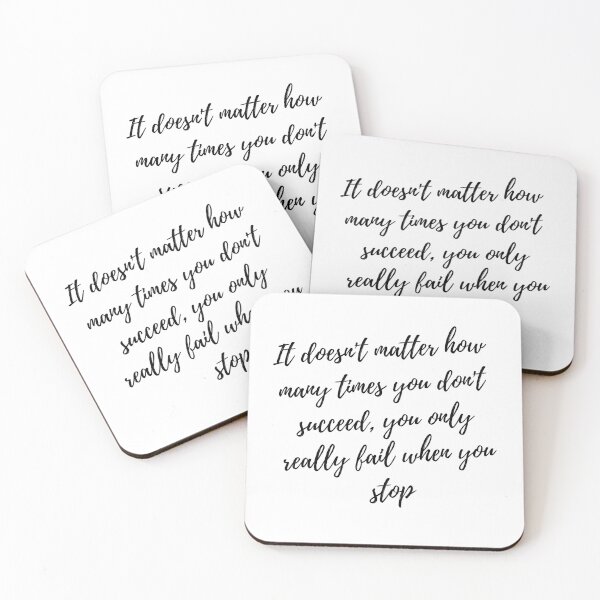 It doesn't matter how
many times you don't
only
It doesn't matter how
many times you don't
succeed, you only
really fail when you
It doesn't matter how
many times you don't
succeed, you only
really fail
stop
It doesn't matter how
many times you don't
succeed, you only
really fail when you
stop